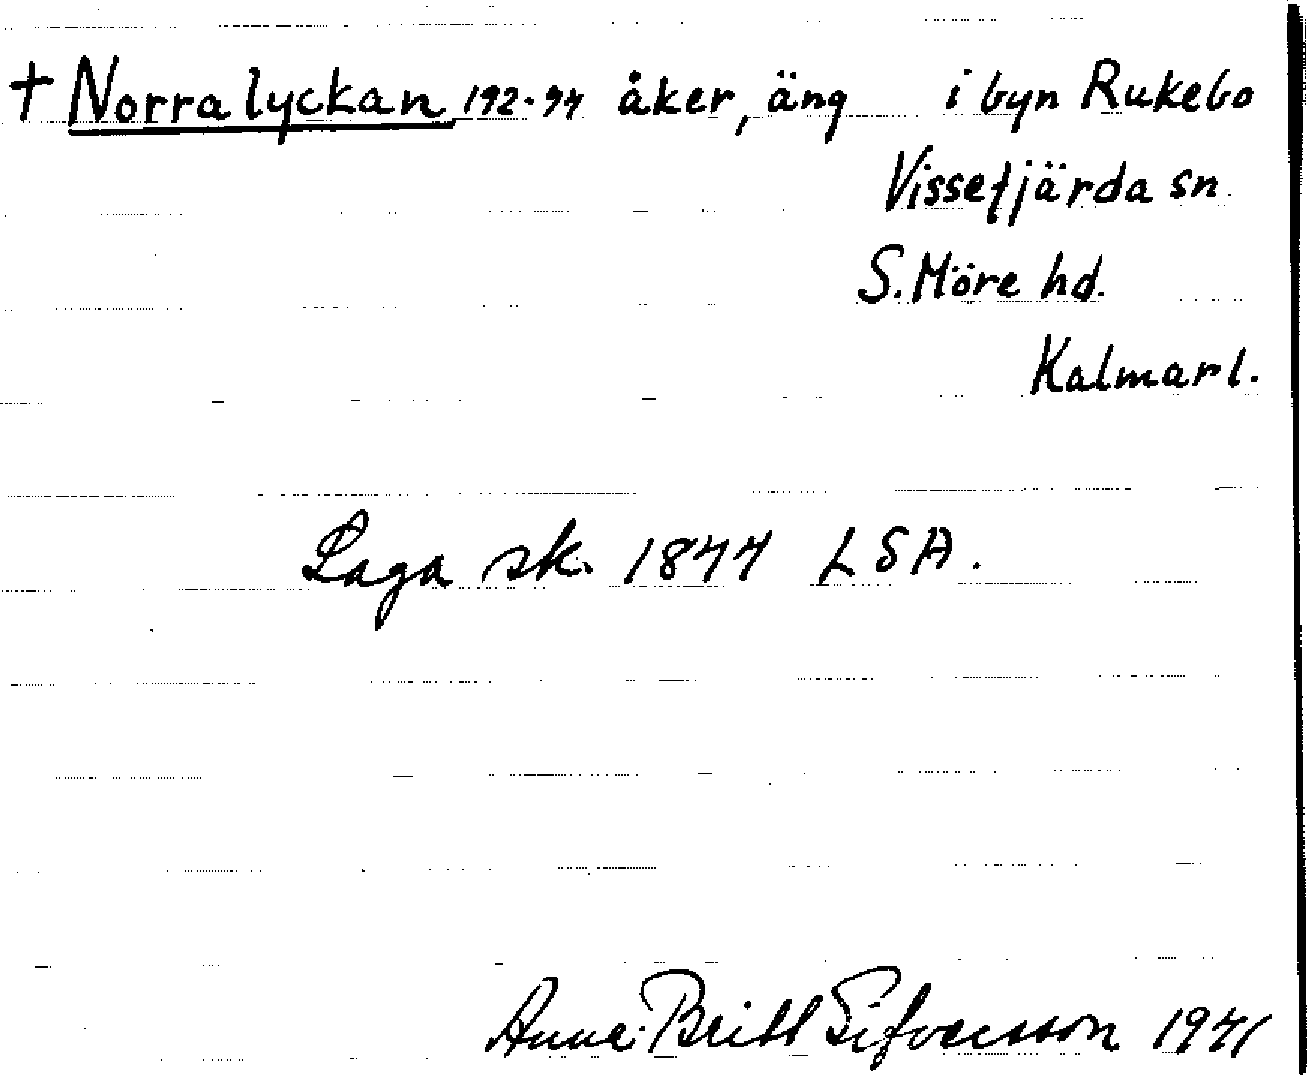 † Norra lyckan 192-94 åker, äng i byn Rukebo
Vissefjärda sn
S. Möre hd.
Kalmar l.
Laga sk. 1844 LSA.
Anna-Britt Sifversson 1941